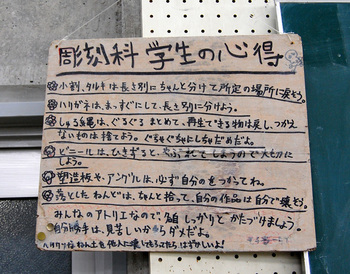 彫刻科 学生の心得
小割、タルキは長さ別にちゃんと分けて所定の場所に戻そう。
ハリガネは、まっすぐにして、長さ別に分けよう。
しゅろ縄は、ぐるぐるまとめて、再生できる物は戻し、つかえ
ないものは捨てよう。ぐちゃぐちゃにしちゃだめだよ。
ビニールは、ひきずると、やぶれてしまうので大切に
しよう。
塑造板や、アングルは、必ず自分のをつかってね。
落としたねんどは、ちゃんと拾って、自分の作品は自分で壊そう。
みんなのアトリエなので、各自しっかりと かたづけましょう。
自分勝手は、見苦しいからダメだよ。
ねん土を他人に壊してもらうのははずかしいよ!